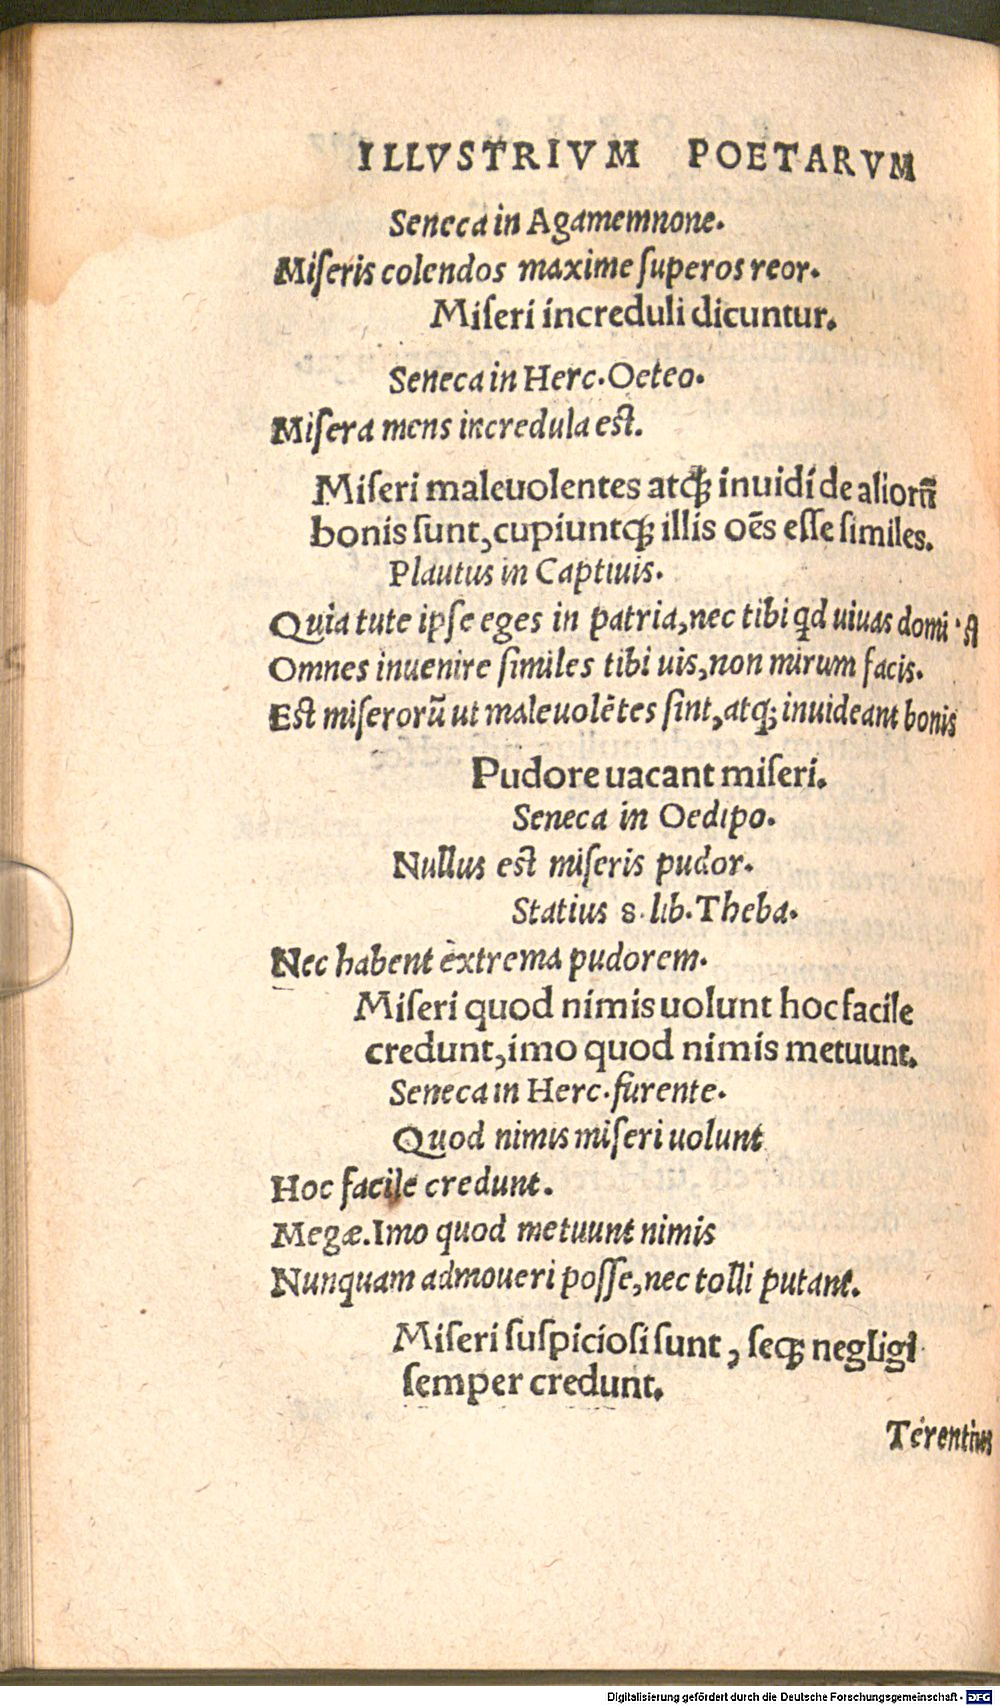 ILLVSTRIVM POETARVM
Seneca in Agamemnone.
Miſeris colendos maxime ſuperos reor.
Miſeri increduli dicuntur.
Seneca in Herc. Oeteo.
Miſera mens incredula eſt.
Miſeri maleuolentes atqꝫ inuidi de aliorū
bonis ſunt, cupiuntqꝫ illis oēs eſſe ſimiles.
Plautus in Captiuis.
Quia tute ipſe eges in patria, nec tibi qd uiuas domi 'ſt
Omnes inuenire ſimiles tibi uis, non mirum facis.
Eſt miſerorū ut maleuolētes ſint, atqꝫ inuideant bonis
Pudore uacant miſeri.
Seneca in Oedipo.
Nullus eſt miſeris pudor.
Statius 8. lib. Theba.
Nec habent extrema pudorem.
Miſeri quod nimis uolunt hoc facile
credunt, imo quod nimis metuunt.
Seneca in Herc. furente.
Quod nimis miſeri uolunt
Hoc facile credunt.
Megæ. Imo quod metuunt nimis
Nunquam admoueri poſſe, nec tolli putant.
Miſeri ſuſpicioſi ſunt, ſeqꝫ negligi
ſemper credunt.
Terentius
Digitalisierung gefördert durch die Deutsche Forschungsgemeinschaft - DFG